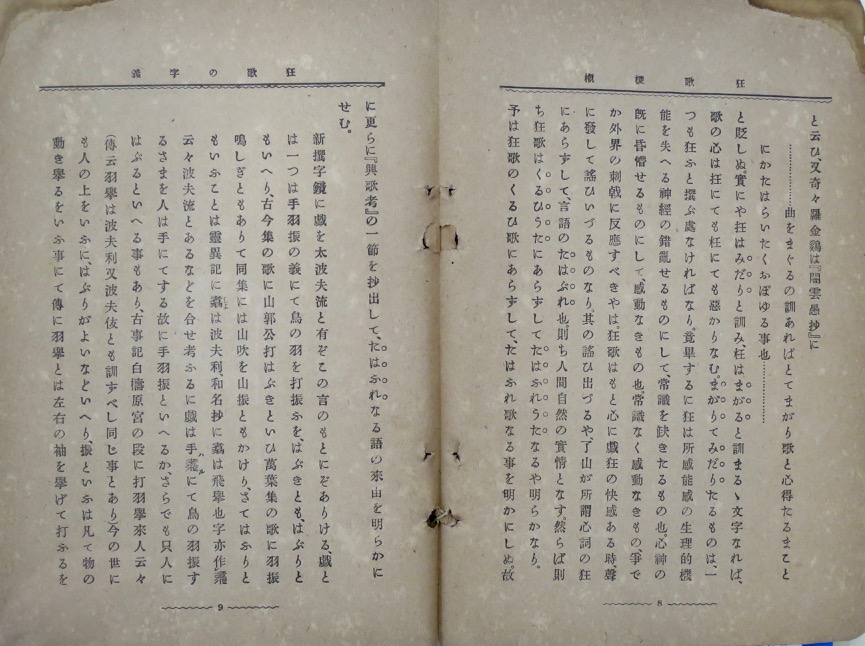 狂歌概槪
と云ひ、又奇々羅金鷄は『闇雲愚抄』に
………………曲をまぐるの訓あればとてまがり歌と心得たるまこと
にかたはらいたくおぼゆる事也…………
と貶しぬ。實にや狂はみだりと訓み、枉はまがると訓まるゝ文字なれば、
歌の心は狂にても枉にても惡かりなむ。まがりてみだりたるものは、一
つも狂ふと撰ぶ處なければなり。竟畢するに狂は所感能感の生理的機
能を失へる神經の錯亂せるものにして、常識を缺きたるもの也。心神の
既に昏懵せるものにして感動なきもの也。常識なく感動なきもの、爭で
か外界の刺戟に反應すべきやは。狂歌はもと心に戲狂の快感ある時、聲
に發して謠ひいづるものなり。其の謠ひ出づるや、了山が所謂心詞の狂
にあらずして、言語のたはぶれ也。則ち人間自然の實情となす。然らば則
ち狂歌はくるひうたにあらずしてたはふれうたなるや明らかなり。
予は狂歌のくるひ歌にあらずして、たはふれ歌なる事を明かにしぬ。故
8
狂歌の字義
に更らに『興歌考』の一節を抄出して、たはふれなる語の來由を明らかに
せむ。
新撰字鏡に戲を太波夫流と有ぞこの言のもとにぞありける、戲と
は一つは手羽振の義にて鳥の羽を打振ふを、はぶきとも、はぶりと
もいへり、古今集の歌に山郭公打はぶきといひ萬葉集の歌に羽振
鳴しぎともありて同集には山吹を山振ともかけり、さてはふりと
もいふことは靈異記に翥は波夫利、和名抄に翥は飛擧也字亦作
云々波夫流とあるなどを合せ考ふるに戲は手翥にて鳥の羽振す
るさまを人は手にてする故に手羽振といへるか、さらでも只人に
はぶるといへる事もあり、古事記白檮原宮の段に打羽擧來人云々
(傳云羽擧は波夫利又波夫伎とも訓ずべし同じ事とあり)今の世に
も人の上をいふに、はぶりがよいなどいへり、振といふは凡て物の
動き擧るをいふ事にて傳に羽擧とは左右の袖を擧げて打ふるを
9